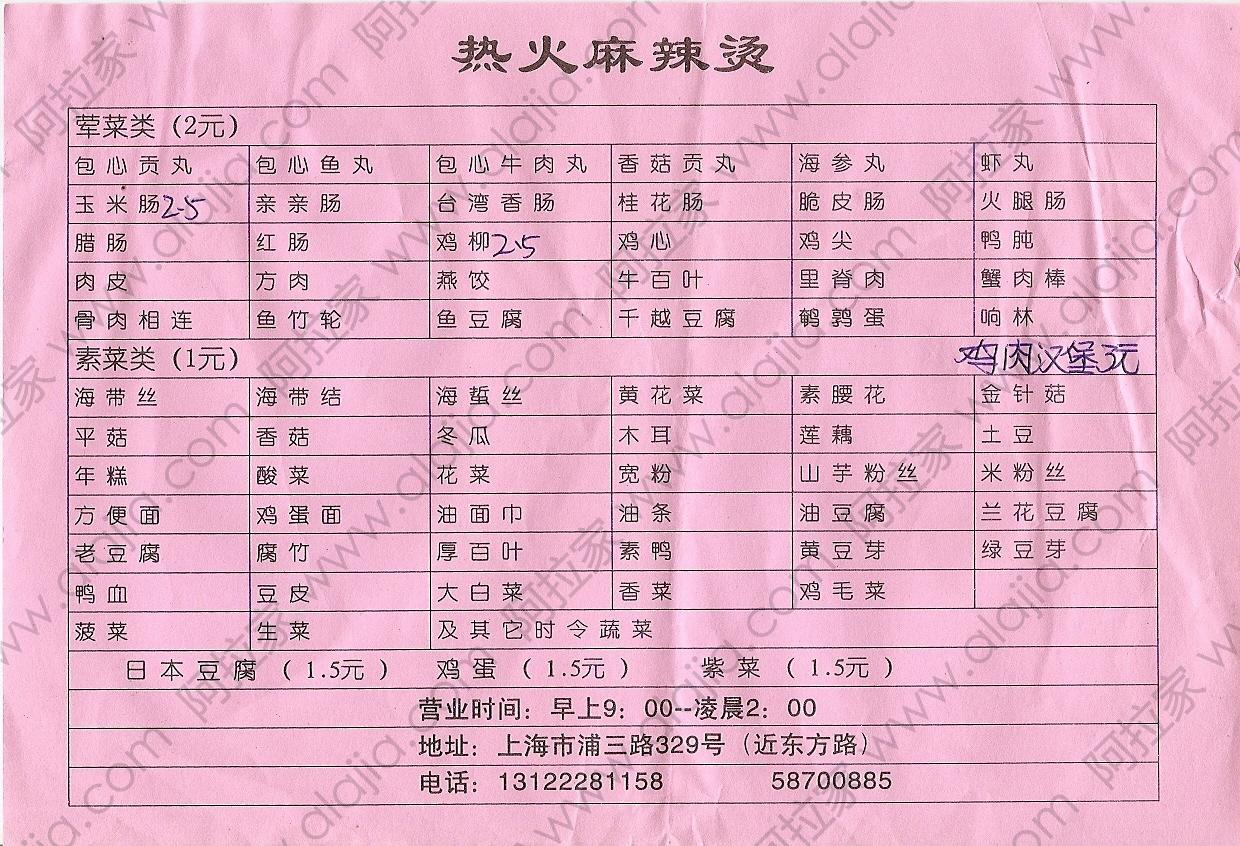 热火麻辣烫
荤菜类（2元）
包心贡丸 包心鱼丸 包心牛肉丸 香菇贡丸 海参丸 虾丸
玉米肠2.5 亲亲肠 台湾香肠 桂花肠 脆皮肠 火腿肠
腊肠 红肠 鸡柳2.5 鸡心 鸡尖 鸭肫
肉皮 方肉 燕饺 牛百叶 里脊肉 蟹肉棒
骨肉相连 鱼竹轮 鱼豆腐 千越豆腐 鹌鹑蛋 响林
素菜类（1元） 鸡肉汉堡3元
海带丝 海带结 海蜇丝 黄花菜 素腰花 金针菇
平菇 香菇 冬瓜 木耳 莲藕 土豆
年糕 酸菜 花菜 宽粉 山芋粉丝 米粉丝
方便面 鸡蛋面 油面巾 油条 油豆腐 兰花豆腐
老豆腐 腐竹 厚百叶 素鸭 黄豆芽 绿豆芽
鸭血 豆皮 大白菜 香菜 鸡毛菜
菠菜 生菜 及其它时令蔬菜
日本豆腐（1.5元） 鸡蛋（1.5元） 紫菜（1.5元）
营业时间：早上9：00--凌晨2：00
地址：上海市浦三路329号（近东方路）
电话：13122281158 58700885
阿拉家 www.alajia.com